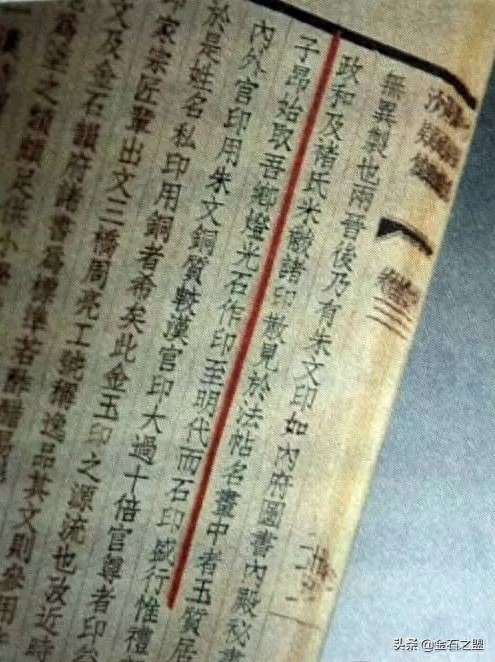 無異製也兩晉後乃有朱文印如內府圖書內殿秘書
政和及褚氏米黻諸印散見於法帖名畫中者玉質居
子昂始取吾鄉燈光石作印至明代而石印盛行惟禮
內外官印用朱文銅質較漢官印大過十倍官尊者印
於是姓名私印用銅者希矣此金玉印之源流也汝近時
印家宗匠輩出文三橋周亮工號稱逸品其文則參用
文及金石韻府諸書為標準若
足供小
头条 @金石之盟